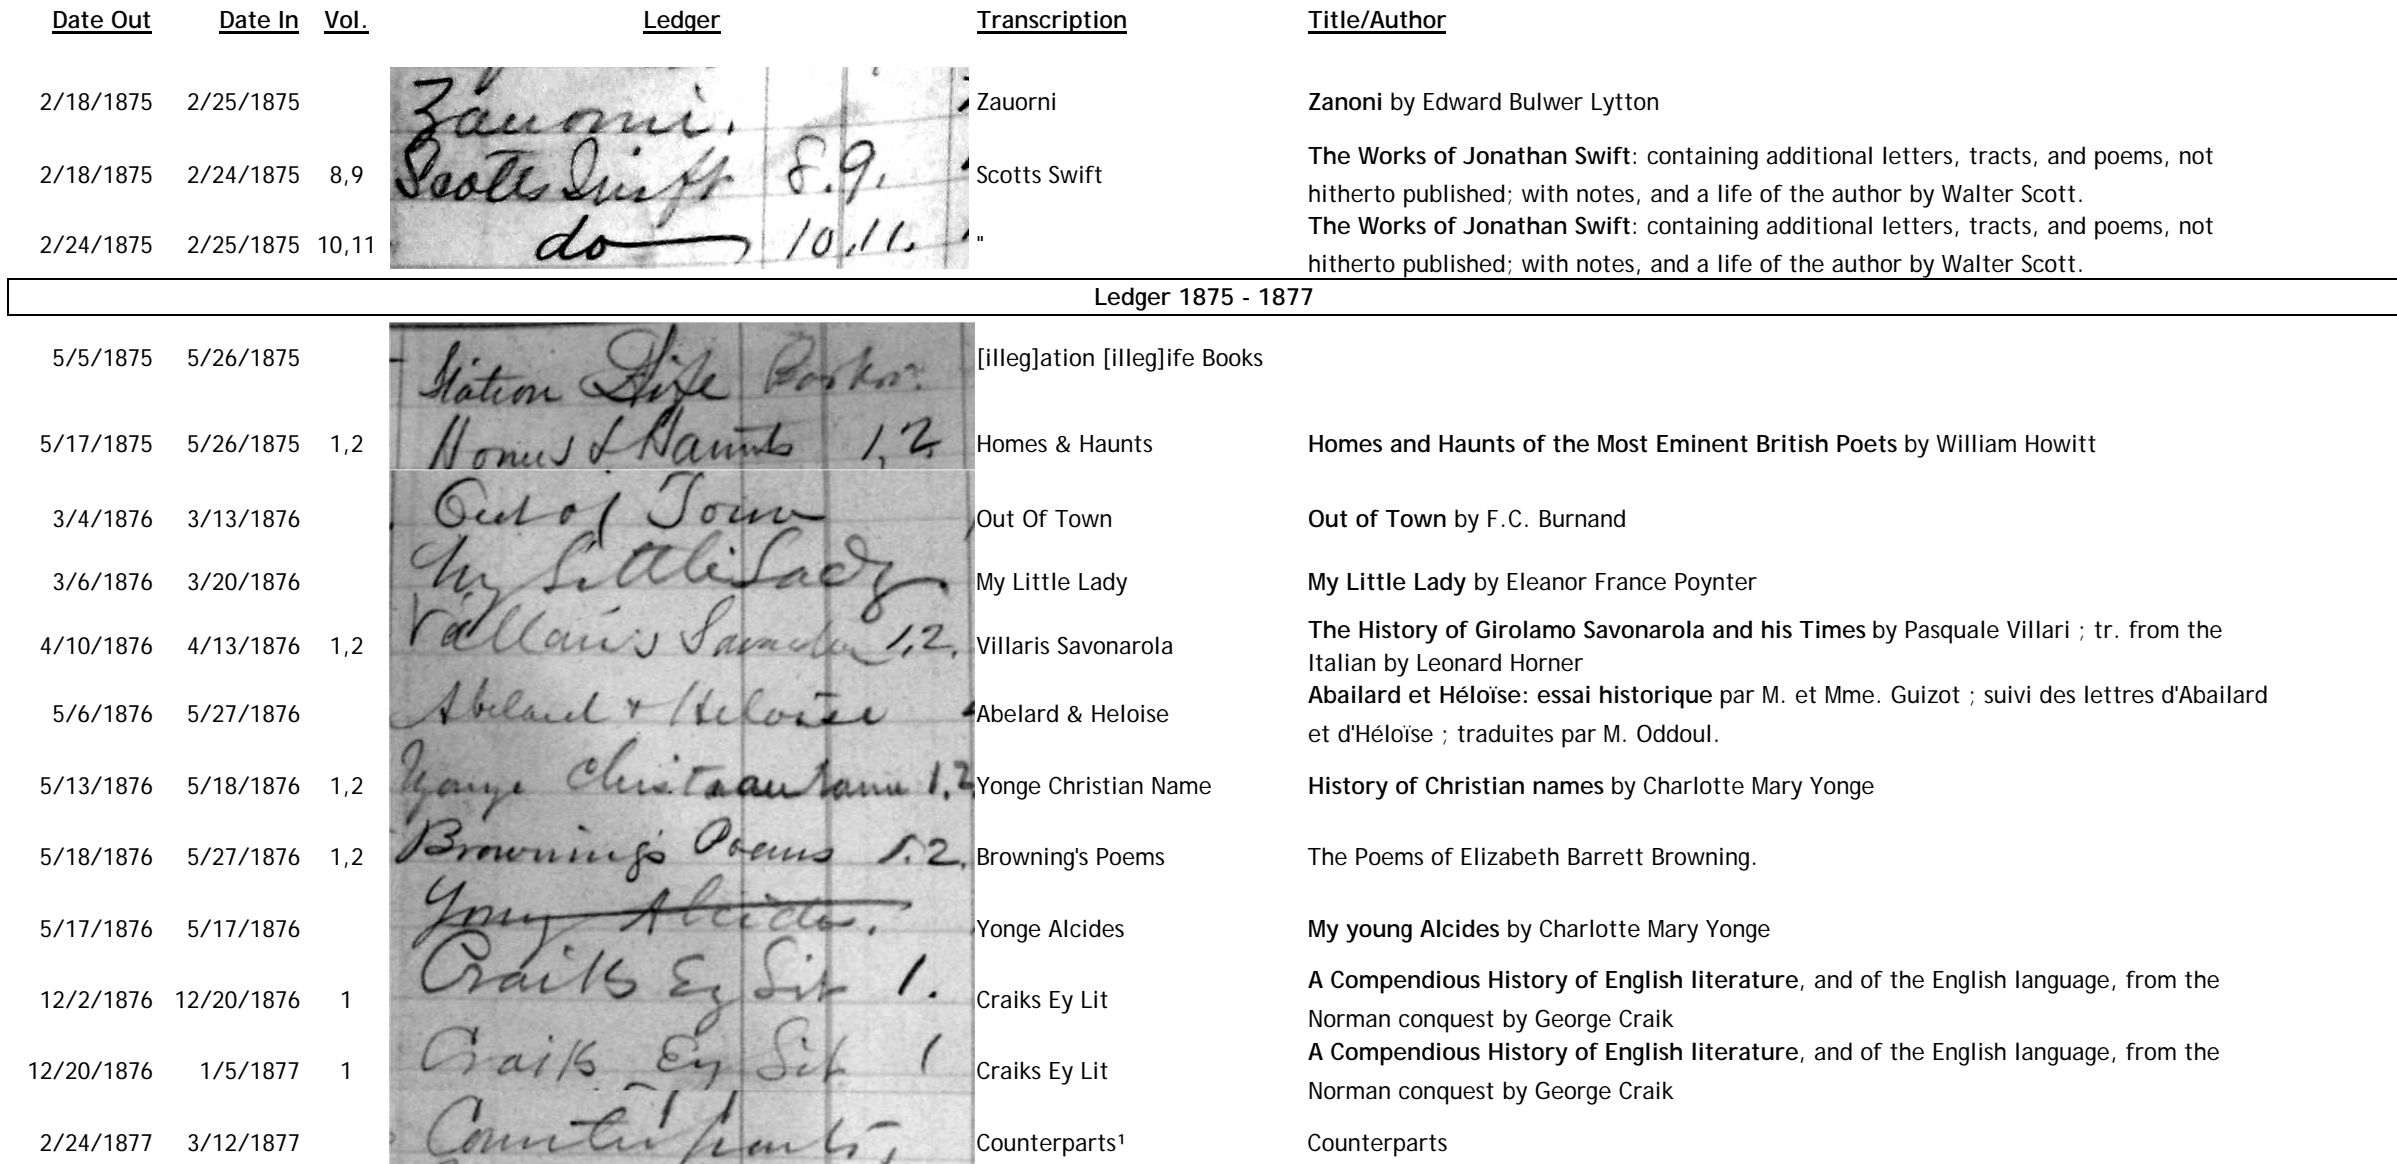 Date Out Date In Vol. Ledger Transcription Title/Author
2/18/1875 2/25/1875 Zauorni. Zauorni Zanoni by Edward Bulwer Lytton
2/18/1875 2/24/1875 8,9 Scotts Swift 8.9. Scotts Swift The Works of Jonathan Swift: containing additional letters, tracts, and poems, not
hitherto published; with notes, and a life of the author by Walter Scott.
2/24/1875 2/25/1875 10,11 do 10,11. " The Works of Jonathan Swift: containing additional letters, tracts, and poems, not
hitherto published; with notes, and a life of the author by Walter Scott.
Ledger 1875 - 1877
5/5/1875 5/26/1875 [illeg]ation [illeg]ife Books
5/17/1875 5/26/1875 1,2 Homes & Haunts 1,2 Homes & Haunts Homes and Haunts of the Most Eminent British Poets by William Howitt
3/4/1876 3/13/1876 Out of Town Out Of Town Out of Town by F.C. Burnand
3/6/1876 3/20/1876 My Little Lady My Little Lady My Little Lady by Eleanor France Poynter
4/10/1876 4/13/1876 1,2 1,2. Villaris Savonarola The History of Girolamo Savonarola and his Times by Pasquale Villari ; tr. from the
Italian by Leonard Horner
5/6/1876 5/27/1876 Abelard & Heloise Abelard & Heloise Abailard et Héloïse: essai historique par M. et Mme. Guizot ; suivi des lettres d'Abailard
et d'Héloïse ; traduites par M. Oddoul.
5/13/1876 5/18/1876 1,2 Yonge Christian Name 1,2 Yonge Christian Name History of Christian names by Charlotte Mary Yonge
5/18/1876 5/27/1876 1,2 Browning's Poems 1.2. Browning's Poems The Poems of Elizabeth Barrett Browning.
5/17/1876 5/17/1876 Yong Alcides. Yonge Alcides My young Alcides by Charlotte Mary Yonge
12/2/1876 12/20/1876 1 Craiks Ey Lit 1. Craiks Ey Lit A Compendious History of English literature, and of the English language, from the
Norman conquest by George Craik
12/20/1876 1/5/1877 1 Craiks Ey Lit 1 Craiks Ey Lit A Compendious History of English literature, and of the English language, from the
Norman conquest by George Craik
2/24/1877 3/12/1877 Counterparts, Counterparts¹ Counterparts